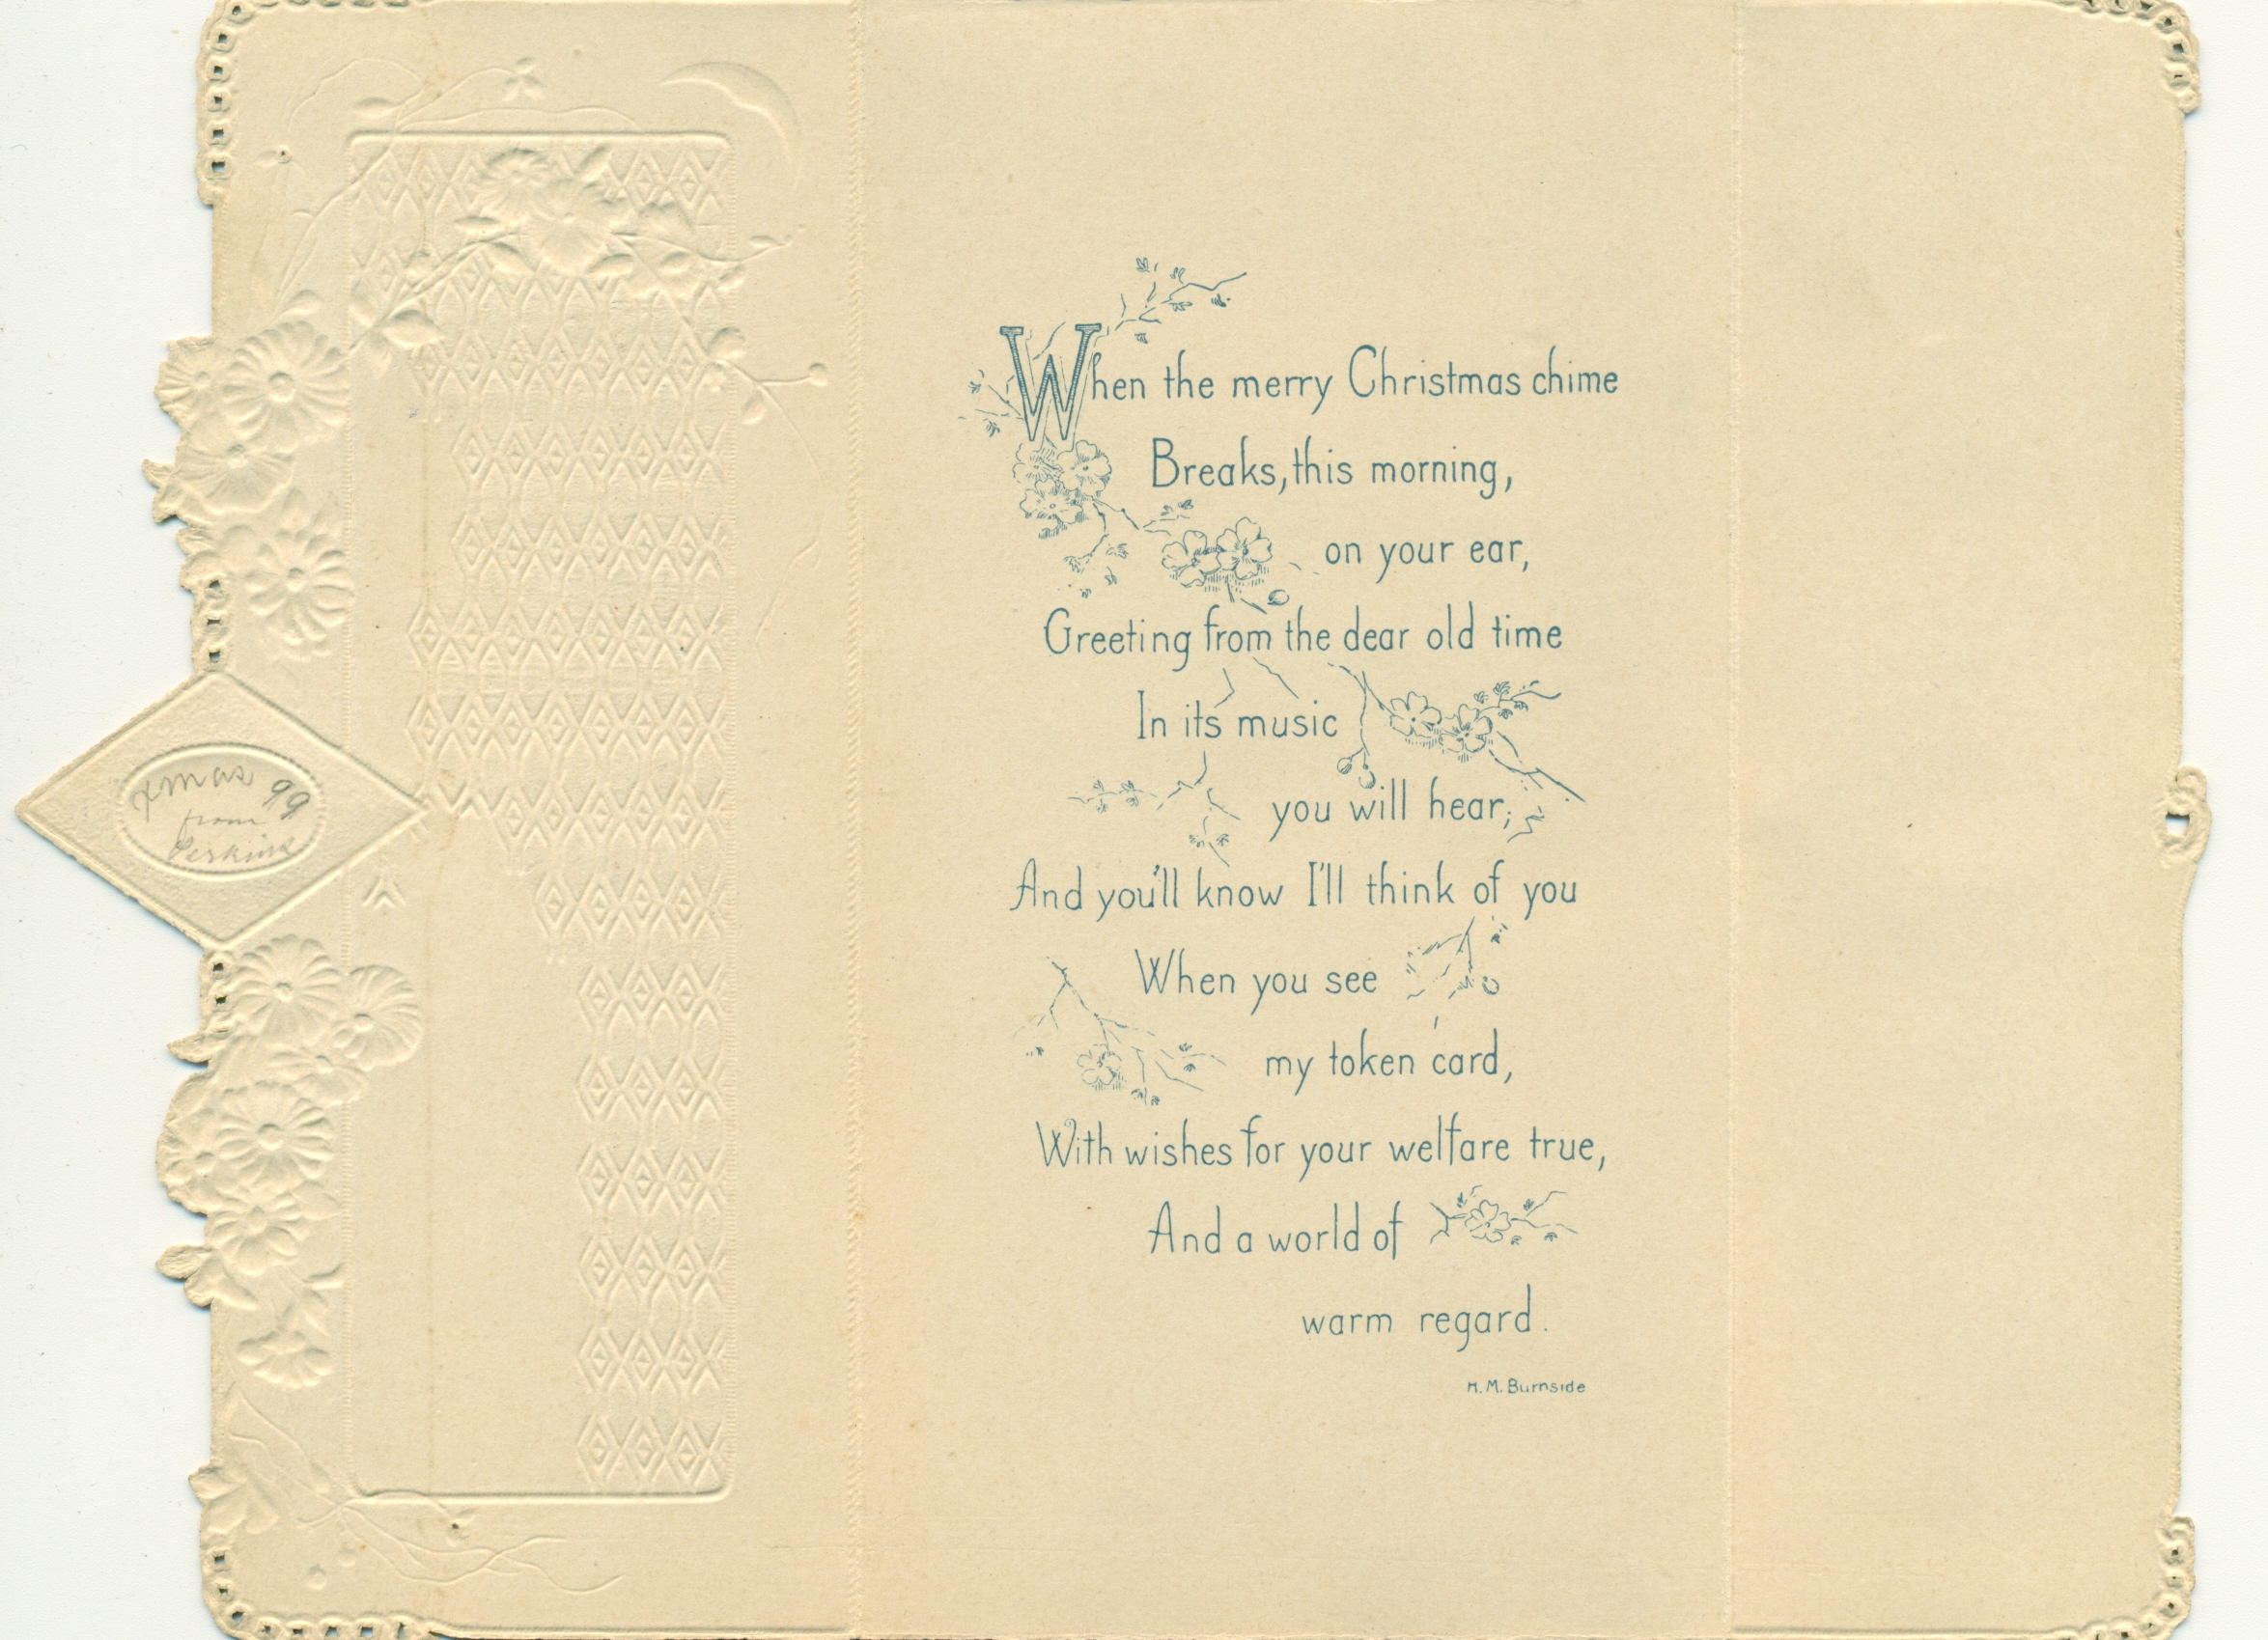 xmas 99
from
Perkins
When the merry Christmas chime
Breaks, this morning,
on your ear,
Greeting from the dear old time
In its music
you will hear;
And you'll know I'll think of you
When you see
my token card,
With wishes for your welfare true,
And a world of
warm regard.
H. M. Burnside